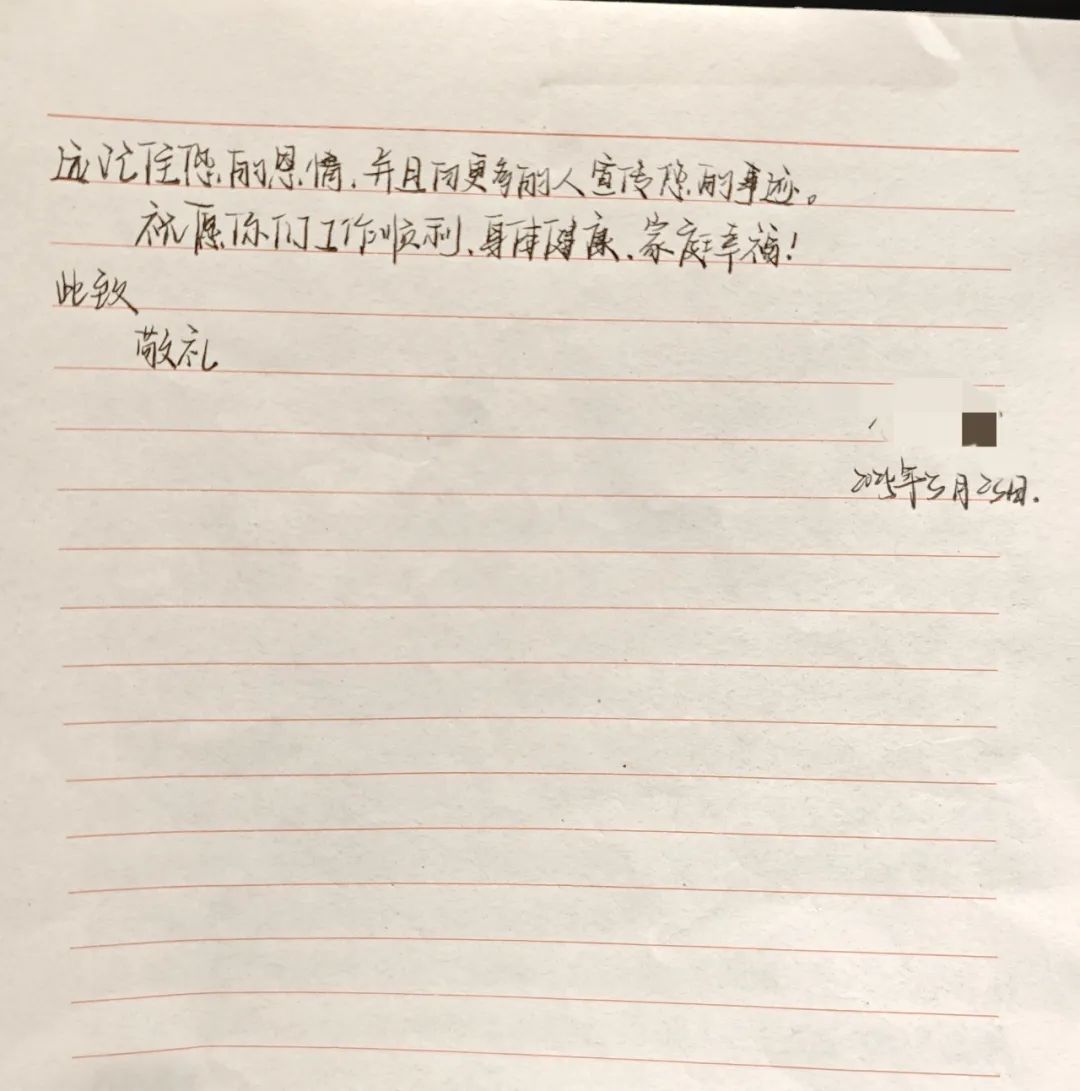 远记住您的恩情，并且向更多的人宣传您的事迹。
祝愿你们工作顺利、身体健康、家庭幸福！
此致
敬礼
2025年3月25日.